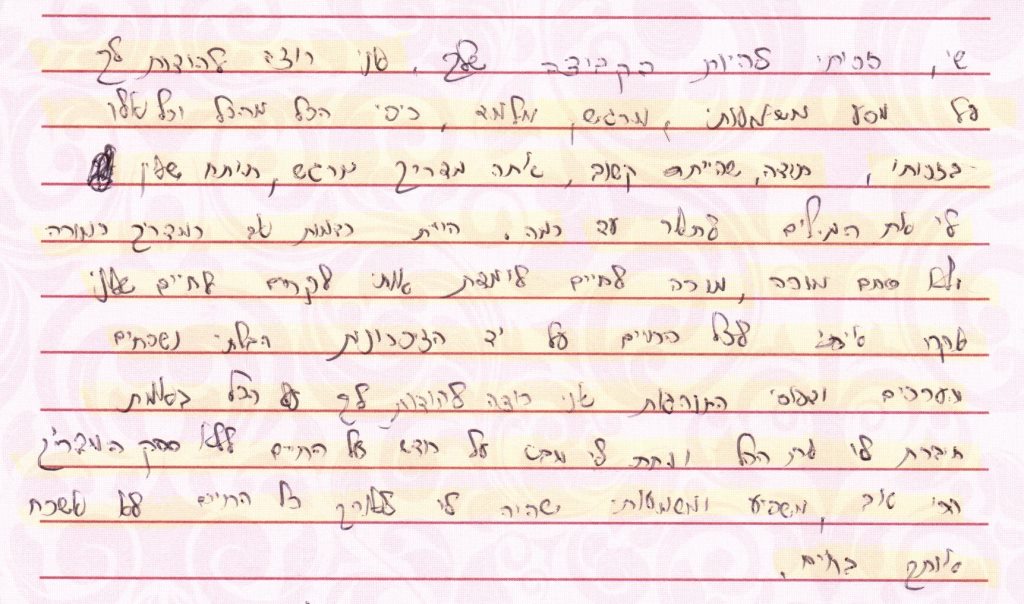 שי, זכיתי להיות הקבוצה שלך, אני רוצה להודות לך
על מסע משמעותי, מרגש, מלמד, כיפי הכל מהכל וכל שאלו
בזכותך, תודה, שהיית קשוב, אתה מדריך מרגש, תיתה שאין
לי את המילים לתאר עד כמה. היית דמות גם כמדריך כמורה
ולא סתם מורה, מורה לחיים לימדת אותי לקחים לחיים שאני
אקח איתי לכל החיים על יד הזיכרונות הבלתי נשכחים
מערכים ודפוסי התנהגות אני רוצה להודות לך על הכל באמת
חיברת לי את הכל ונתת לי מבט על רודא על החיים ללא ספק המדריך
הכי טוב, משפיע ומשמעותי שהיה לי לאורך כל החיים לא אשכח
אותך בחיים.